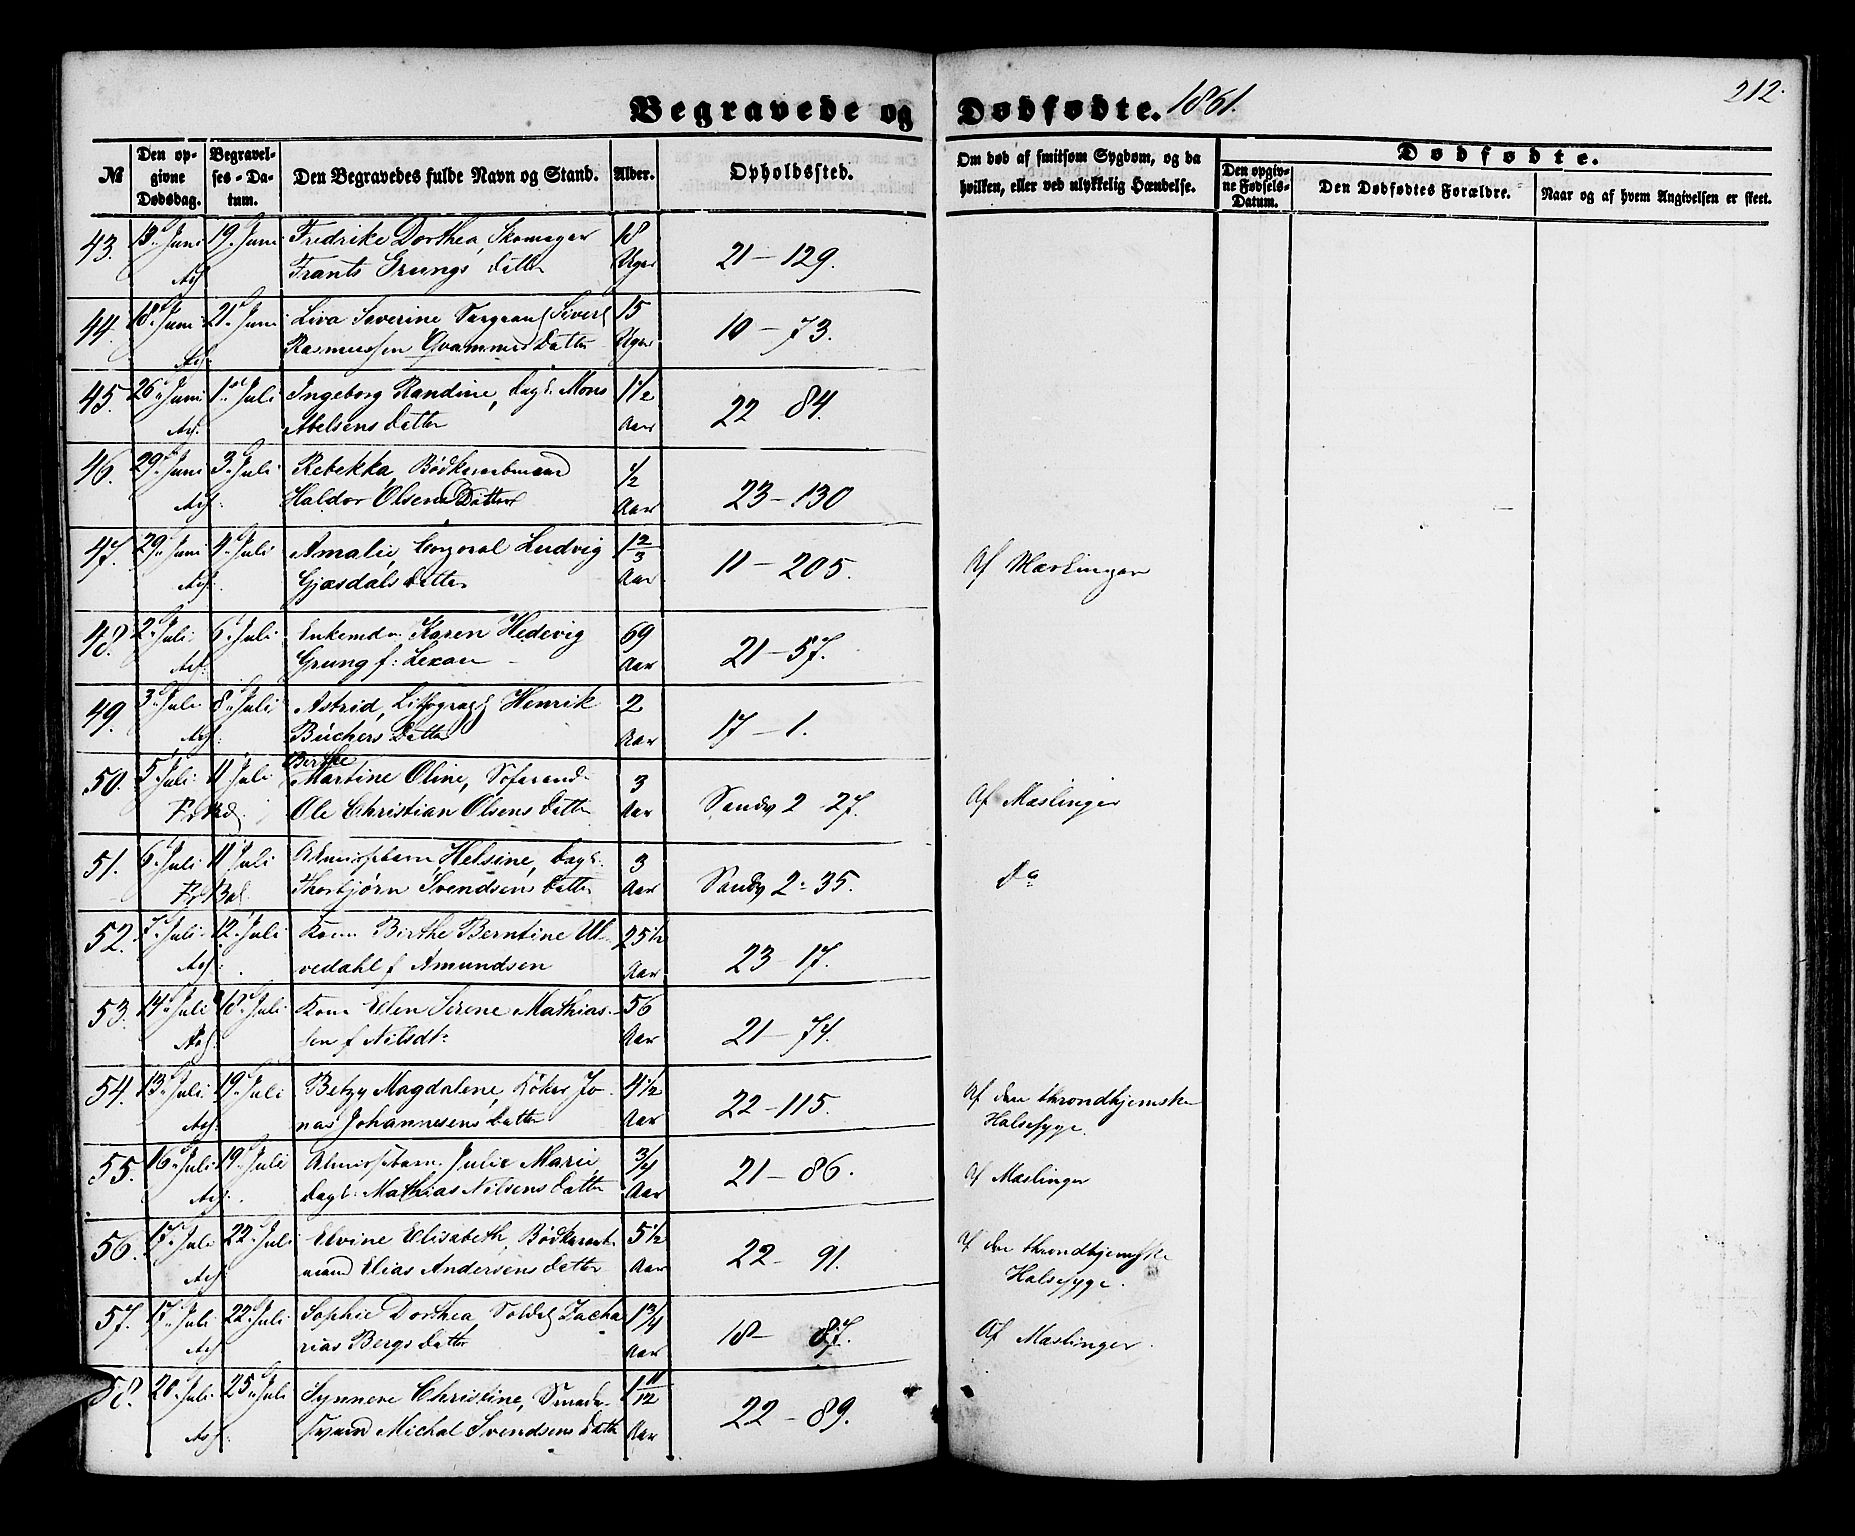 Begravede og Dødfødte. 1861. 212.
№ Den opgivne Dødsdag. Begravelses-Datum. Den Begravedes fulde Navn og Stand. Alder. Opholdssted. Om død af smitsom Sygdom, og da hvilken, eller ved ulykkelig Hændelse. Dødfødte.
Den opgivne Fødsels-Datum. Den Dødfødtes Forældre. Naar og af hvem Angivelsen er skeet.
43. 13 Juni 19 Juni Fredrike Dorthea, Skomager 18
Frants Grungs Datter Uger 21 - 129.
44. 18 Juni 21 Juni Severine Sergeant Sivert 15
Rasmussen Qvammes Datter Uger 10 - 73.
45. 26 Juni 1 Juli Ingeborg Randine, dagl. Mons 1 1/2
Abelsens Datter Aar 22 84.
46. 29 Juni 3 Juli Rebekka, Bødkersvend 1/2
Haldor Olsens Datter Aar 23 - 130
47. 29 Juni 4 Juli Amalie, Corporal Ludvig 1 2/3
Gjæsdals Datter Aar 11 - 205. Af Mæslinger
48. 2 Juli 6 Juli Enkemd. Karen Hedevig 69
Grung f: Lexau Aar 21 - 57.
49. 3 Juli 8 Juli Astrid, Lithograph Henrik 2
Büchers Datter Aar 17 - 1.
50. 5 Juli 11 Juli Birthe
Martine Oline, 3
Ole Christian Olsens Datter Aar Sandv 2 - 27. Af Mæslinger
51. 6 Juli 11 Juli Almissebarn, Helsine, dagl. 3
Thorbjørn Svendsens Datter Aar Sandv 2 - 35. do
52. 7 Juli 12 Juli Kone Birthe Berntine Ul- 25 1/2
vedahl f Amundsen Aar 23 - 17.
53. 14 Juli 18 Juli Kone Elen Serene Mathias- 56
sen f Nilsdt: Aar 21 - 74.
54. 13 Juli 19 Juli Betzy Magdalene, Jo- 4 1/2
nas Johannesens Datter Aar 22 - 115. Af den throndhjemske
Halsesyge.
55. 16 Juli 19 Juli Almissebarn Julie Marie, 3/4
dagl. Mathias Nilsens Datter Aar 21 - 86. Af Mæslinger
56. 17 Juli 22 Juli Elvine Elisabeth, 5 1/2
Elias Andersens Datter Aar 22 - 91. Af den throndhjemske
Halsesyge.
57. 17 Juli 22 Juli Sophie Dorthea, Soldat Zacha 1 3/4
rias Bergs Datter Aar 18 - 87. Af Mæslinger.
58. 20 Juli 25 Juli Synneve Christine, Smede- 1 11/12
svend Michal Svendsens Datter Aar 22 - 89.